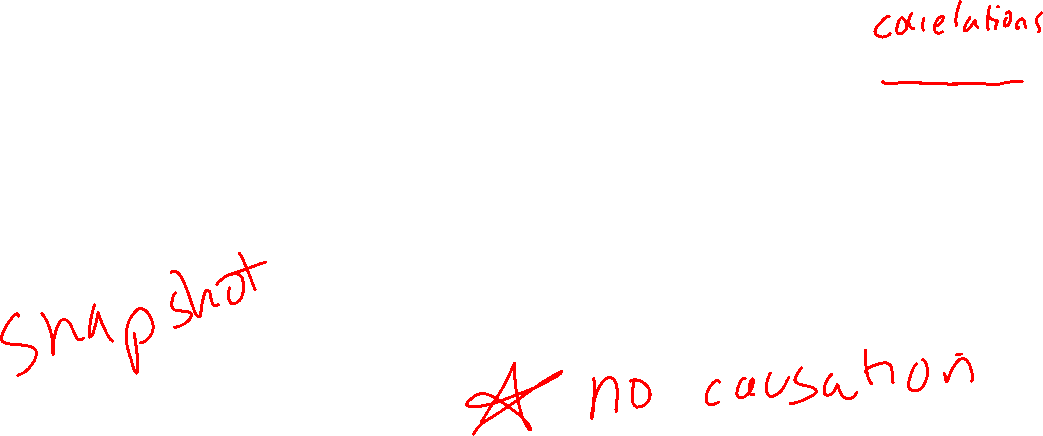 correlations
snapshot
☆ no causation